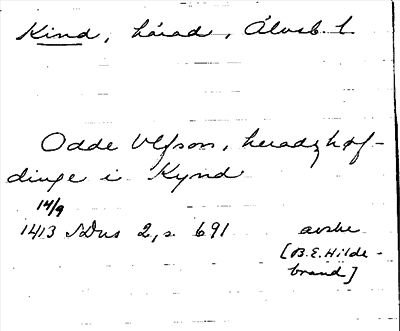 Kind, härad, Älvsb. l
Odde Ulfson, heradzhøf-
dinge i Kynd
14/9
1413 SDns 2, s. 691 avskr
[B.E. Hilde-
brand]